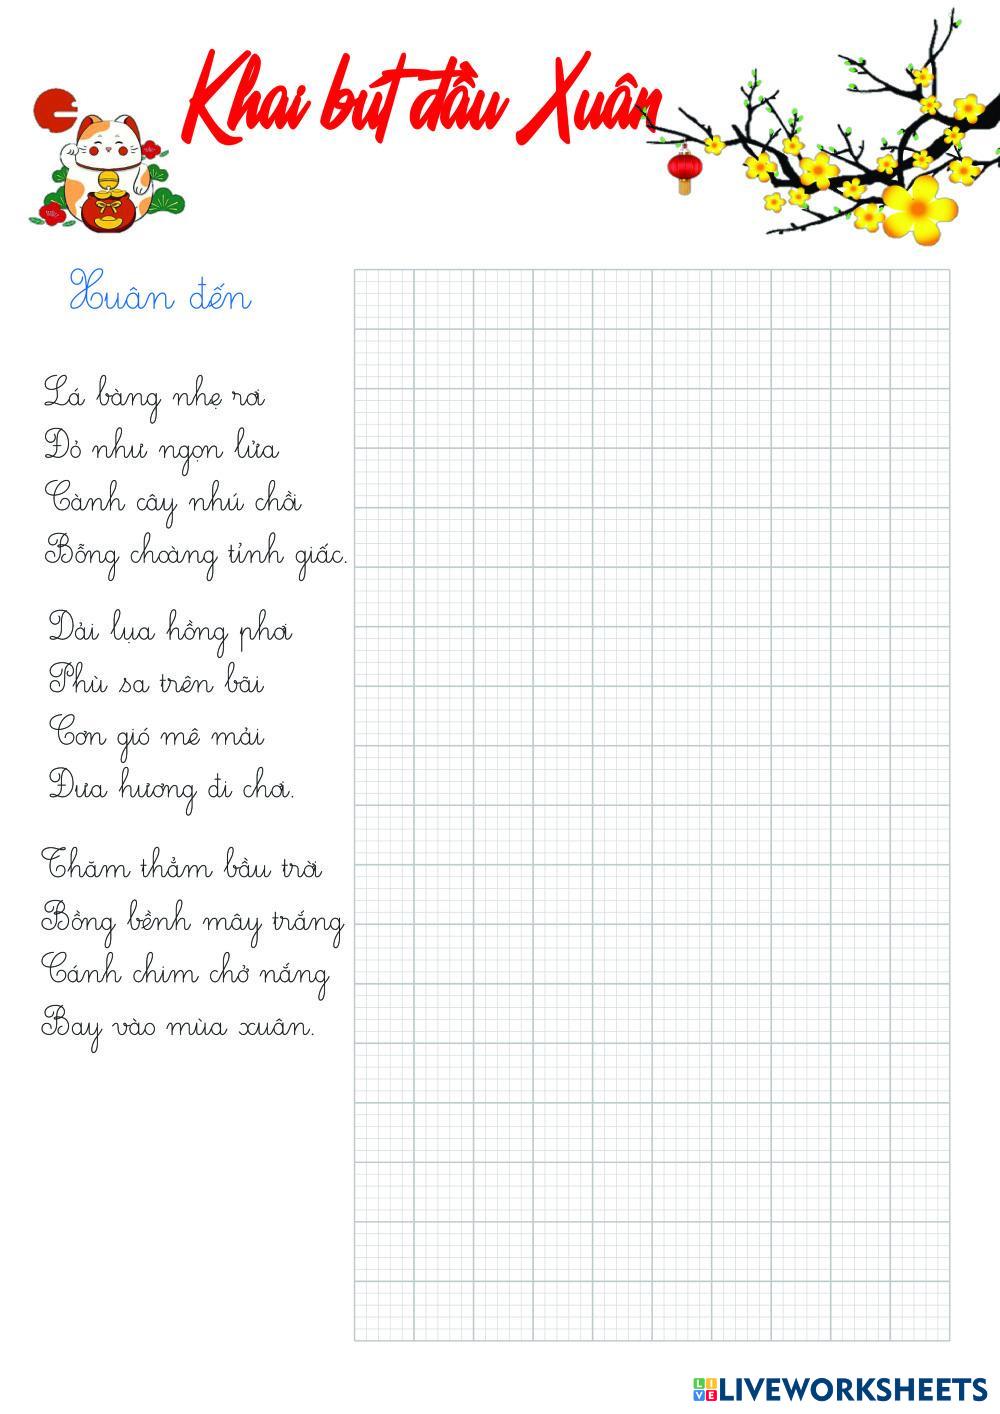 Khai bút đầu Xuân
Xuân đến
Lá bàng nhẹ rơi
Đỏ như ngọn lửa
Cành cây nhú chồi
Bỗng choàng tỉnh giấc.
Dải lụa hồng phơi
Phù sa trên bãi
Cơn gió mê mải
Đưa hương đi chơi.
Thăm thẳm bầu trời
Bồng bềnh mây trắng
Cánh chim chở nắng
Bay vào mùa xuân.
LIVEWORKSHEETS